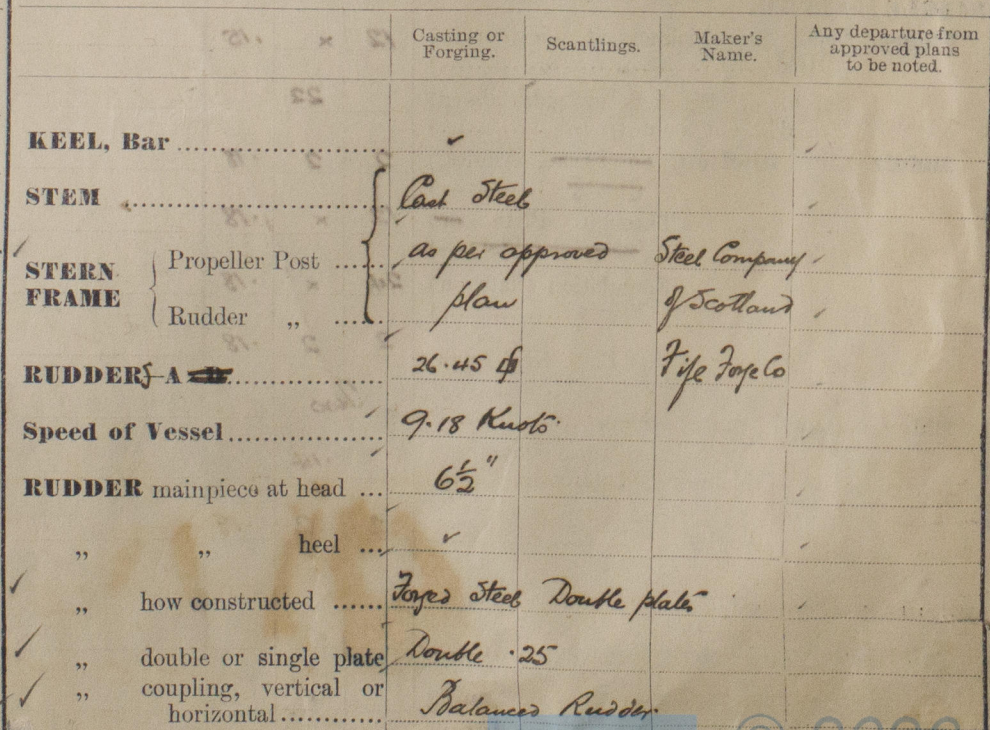 Casting or Forging. Scantlings. Maker's Name. Any departure from approved plans to be noted.
KEEL, Bar ✓
STEM Cast Steel
STERN FRAME Propeller Post as per approved Steel Company
Rudder „ plan of Scotland
RUDDERS A 26.45 Fife Forge Co
Speed of Vessel 9.18 Knots
RUDDER mainpiece at head ... 6½"
„ „ heel ... ✓
„ how constructed ...... Forged Steel Double plates
„ double or single plate Double .25
„ coupling, vertical or
horizontal Balanced Rudder.